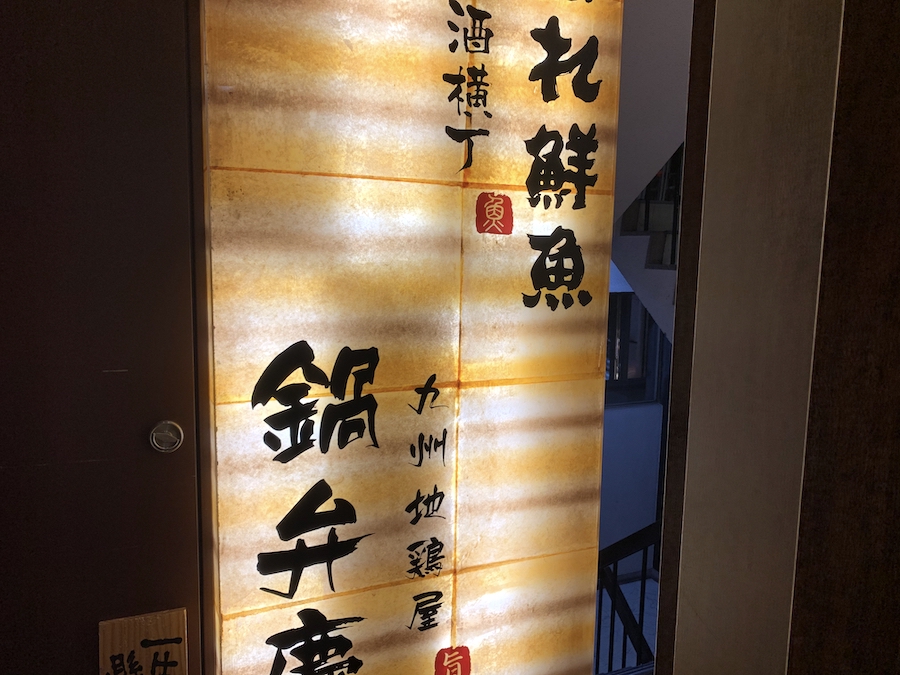 れ鮮魚
酒横丁
魚
九州地鶏屋
旨
鍋弁慶